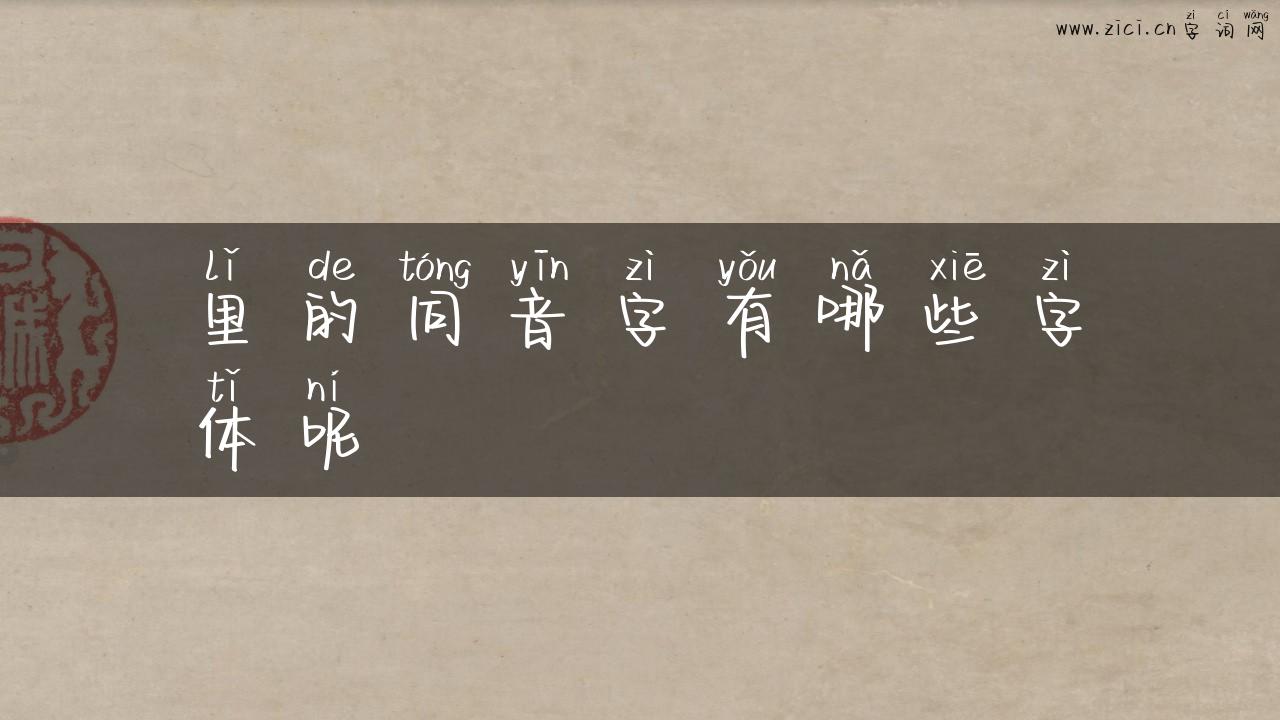 zì cí wǎng
www.zici.cn 字词网
lǐ de tóng yīn zì yǒu nǎ xiē zì
里的同音字有哪些字
tǐ ní
体呢